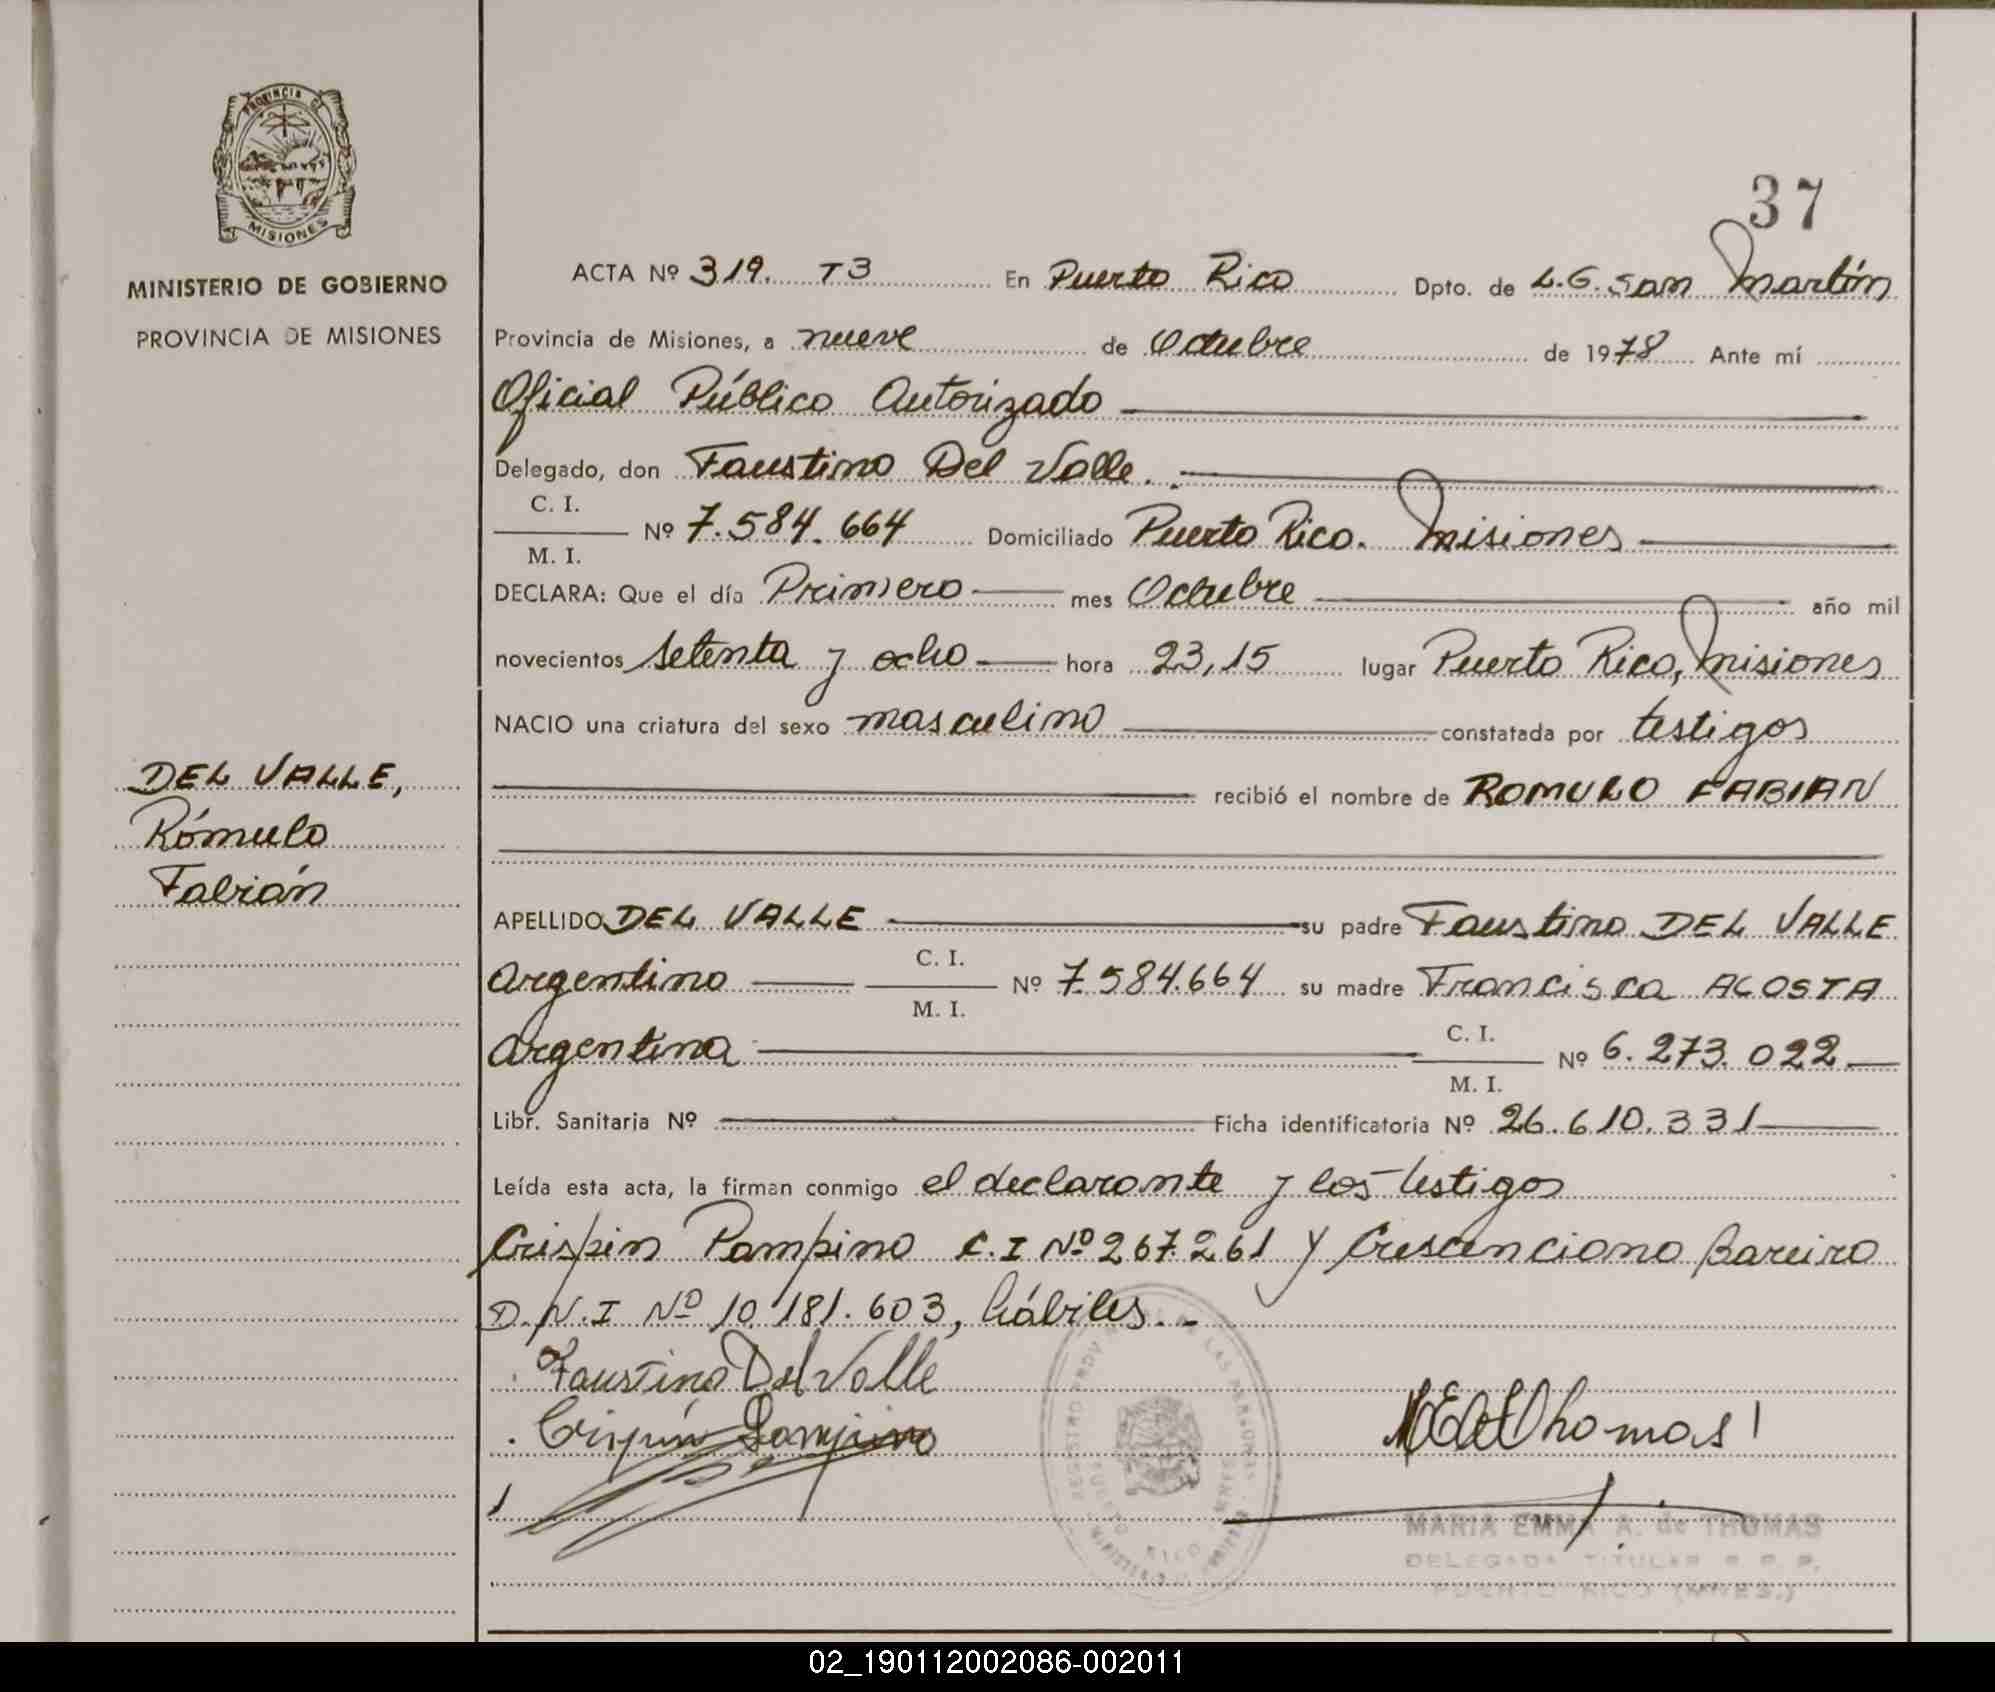 PROVINCIA DE
MISIONES
MINISTERIO DE GOBIERNO
PROVINCIA DE MISIONES
DEL VALLE,
Rómulo
Fabián
37
ACTA Nº 319. T3 En Puerto Rico Dpto. de L.G. San Martín
Provincia de Misiones, a nueve de Octubre de 1978 Ante mí
Oficial Público Autorizado
Delegado, don Faustino Del Valle.
C. I.
M. I.
Nº 7.584.664 Domiciliado Puerto Rico. Misiones
DECLARA: Que el día Primero mes Octubre año mil
novecientos setenta y ocho hora 23,15 lugar Puerto Rico, Misiones
NACIO una criatura del sexo masculino constatada por testigos
recibió el nombre de ROMULO FABIAN
APELLIDO DEL VALLE su padre Faustino DEL VALLE
argentino C. I. M. I. Nº 7.584.664 su madre Francisca ACOSTA
argentina C. I. M. I. Nº 6.273.022
Libr. Sanitaria Nº Ficha identificatoria Nº 26.610.331
Leída esta acta, la firman conmigo el declarante y los testigos
Crispin Pampino C.I Nº 267.261 y Crescenciono Bareiro
D.N.I Nº 10.181.603, hábiles.-
Faustino Del Valle
Crispín Pampino
Thomas
MARIA EMMA A. de THOMAS
DELEGADA TITULAR R. P. P.
PUERTO RICO (MNES.)
02_190112002086-002011